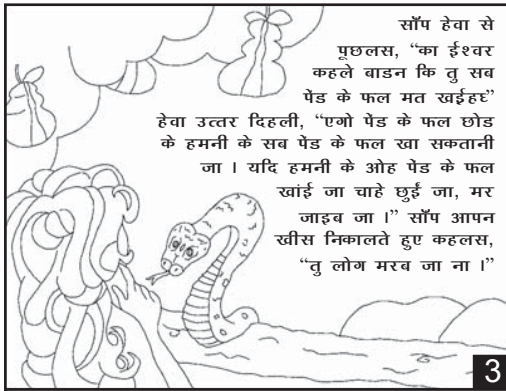 साँप हेवा से
पूछलस, “का ईश्वर
कहले बाडन कि तु सब
पेंड के फल मत खईहऽ”
हेवा उत्तर दिहली, “एगो पेंड के फल छोड
के हमनी के सब पेंड के फल खा सकतानी
जा । यदि हमनी के ओह पेंड के फल
खांई जा चाहे छुईं जा, मर
जाइब जा ।” साँप आपन
खीस निकालते हुए कहलस,
“तु लोग मरब जा ना ।”
3